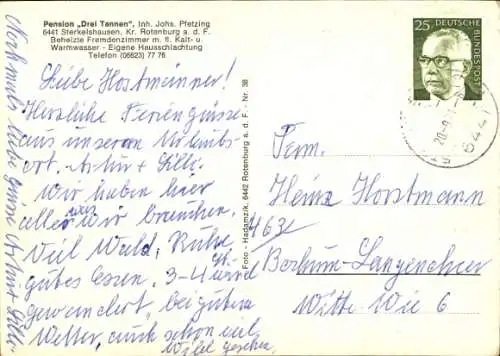 Pension „Drei Tannen“, Inh. Johs. Pfetzing
6441 Sterkelshausen, Kr. Rotenburg a. d. F.
Beheizte Fremdenzimmer m. fl. Kalt- u.
Warmwasser - Eigene Hausschlachtung
Telefon (06623) 77 76
Liebe Horstmänner!
Herzliche Feriengrüsse
aus unserem Urlaubs-
ort. Artur + Lilly.
Wir haben hier
alles was wir brauchen.
Viel Wald, Ruhe,
gutes Essen. 3-4 wird
gewandert, bei gutem
Wetter, auch schon viel
Wild gesehen.
Nochmals liebe Grüsse Artur + Lilly
Foto - Hadamzik, 6442 Rotenburg a. d. F. - Nr. 38
25
DEUTSCHE
BUNDESPOST
644
Fam.
Heinz Horstmann
463
Bochum-Langendreer
Witte Wie 6